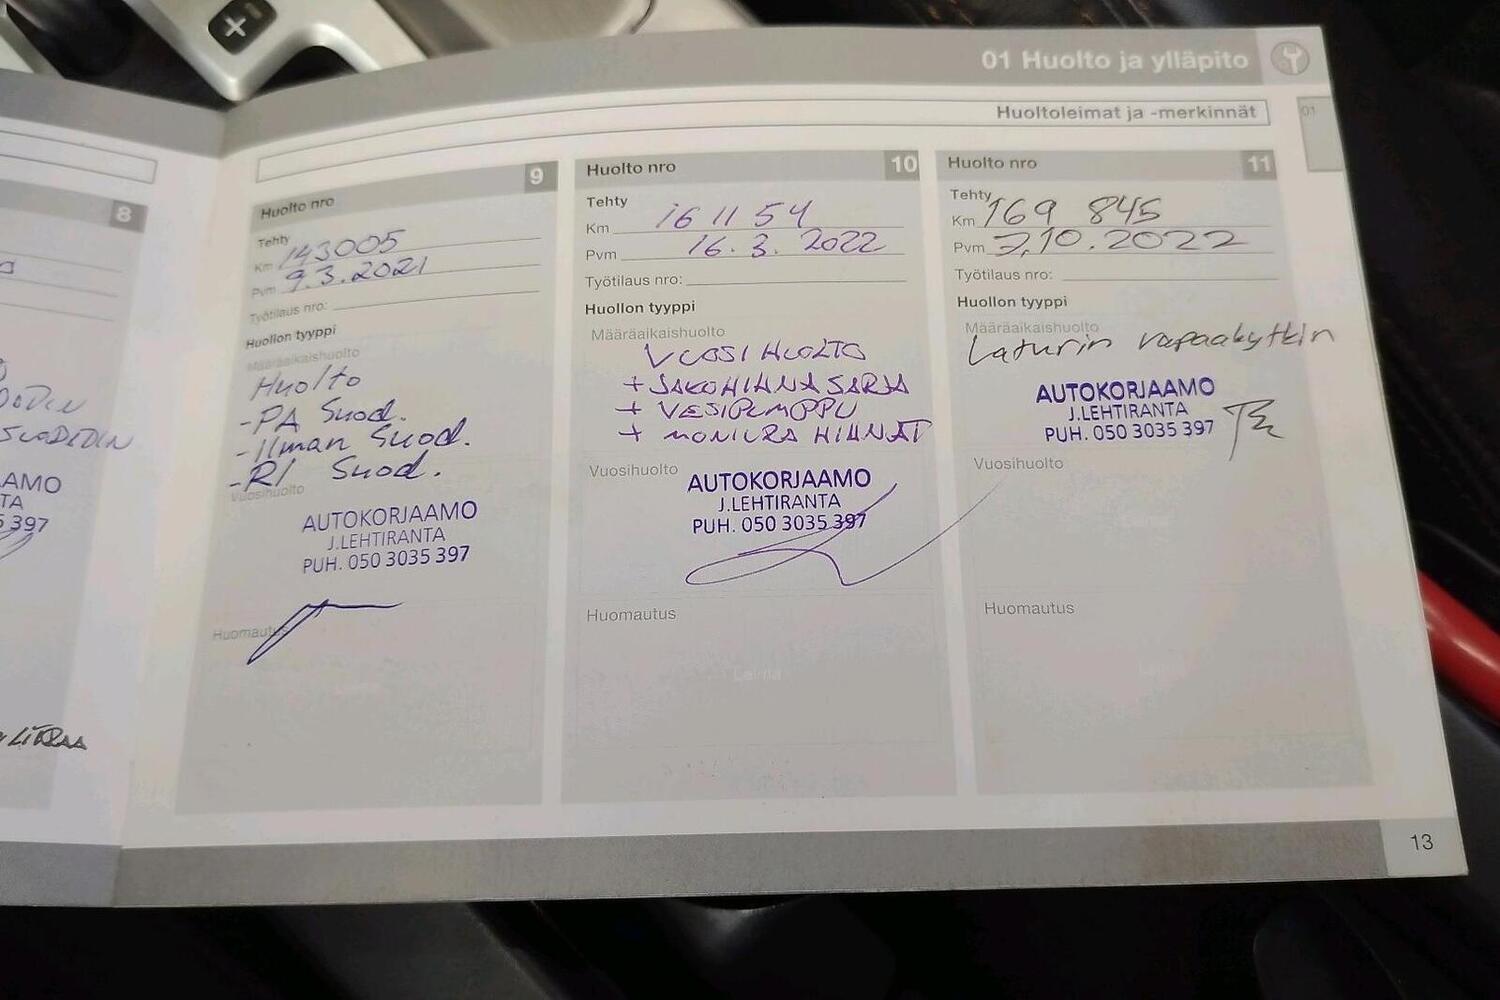 01 Huolto ja ylläpito
Huoltoleimat ja -merkinnät
01
8
SUODEDIN
AMO
TA
5 397
LITRAA
Huolto nro 9
Tehty
Km 143005
Pvm 9.3.2021
Työtilaus nro:
Huollon tyyppi
Määräaikaishuolto
Huolto
-PA Suod.
-Ilman Suod.
-RI Suod.
Vuosihuolto
AUTOKORJAAMO
J.LEHTIRANTA
PUH. 050 3035 397
Huomautus
Huolto nro 10
Tehty
Km 161154
Pvm 16.3.2022
Työtilaus nro:
Huollon tyyppi
Määräaikaishuolto
VUOSIHUOLTO
+ JAKOHIHNASARJA
+ VESIPUMPPU
+ MONIURA HIHNAT
Vuosihuolto
AUTOKORJAAMO
J.LEHTIRANTA
PUH. 050 3035 397
Huomautus
Leima
Huolto nro 11
Tehty
Km 169 845
Pvm 7.10.2022
Työtilaus nro:
Huollon tyyppi
Määräaikaishuolto
Laturin vapaakytkin
AUTOKORJAAMO
J.LEHTIRANTA
PUH. 050 3035 397
Vuosihuolto
Huomautus
13